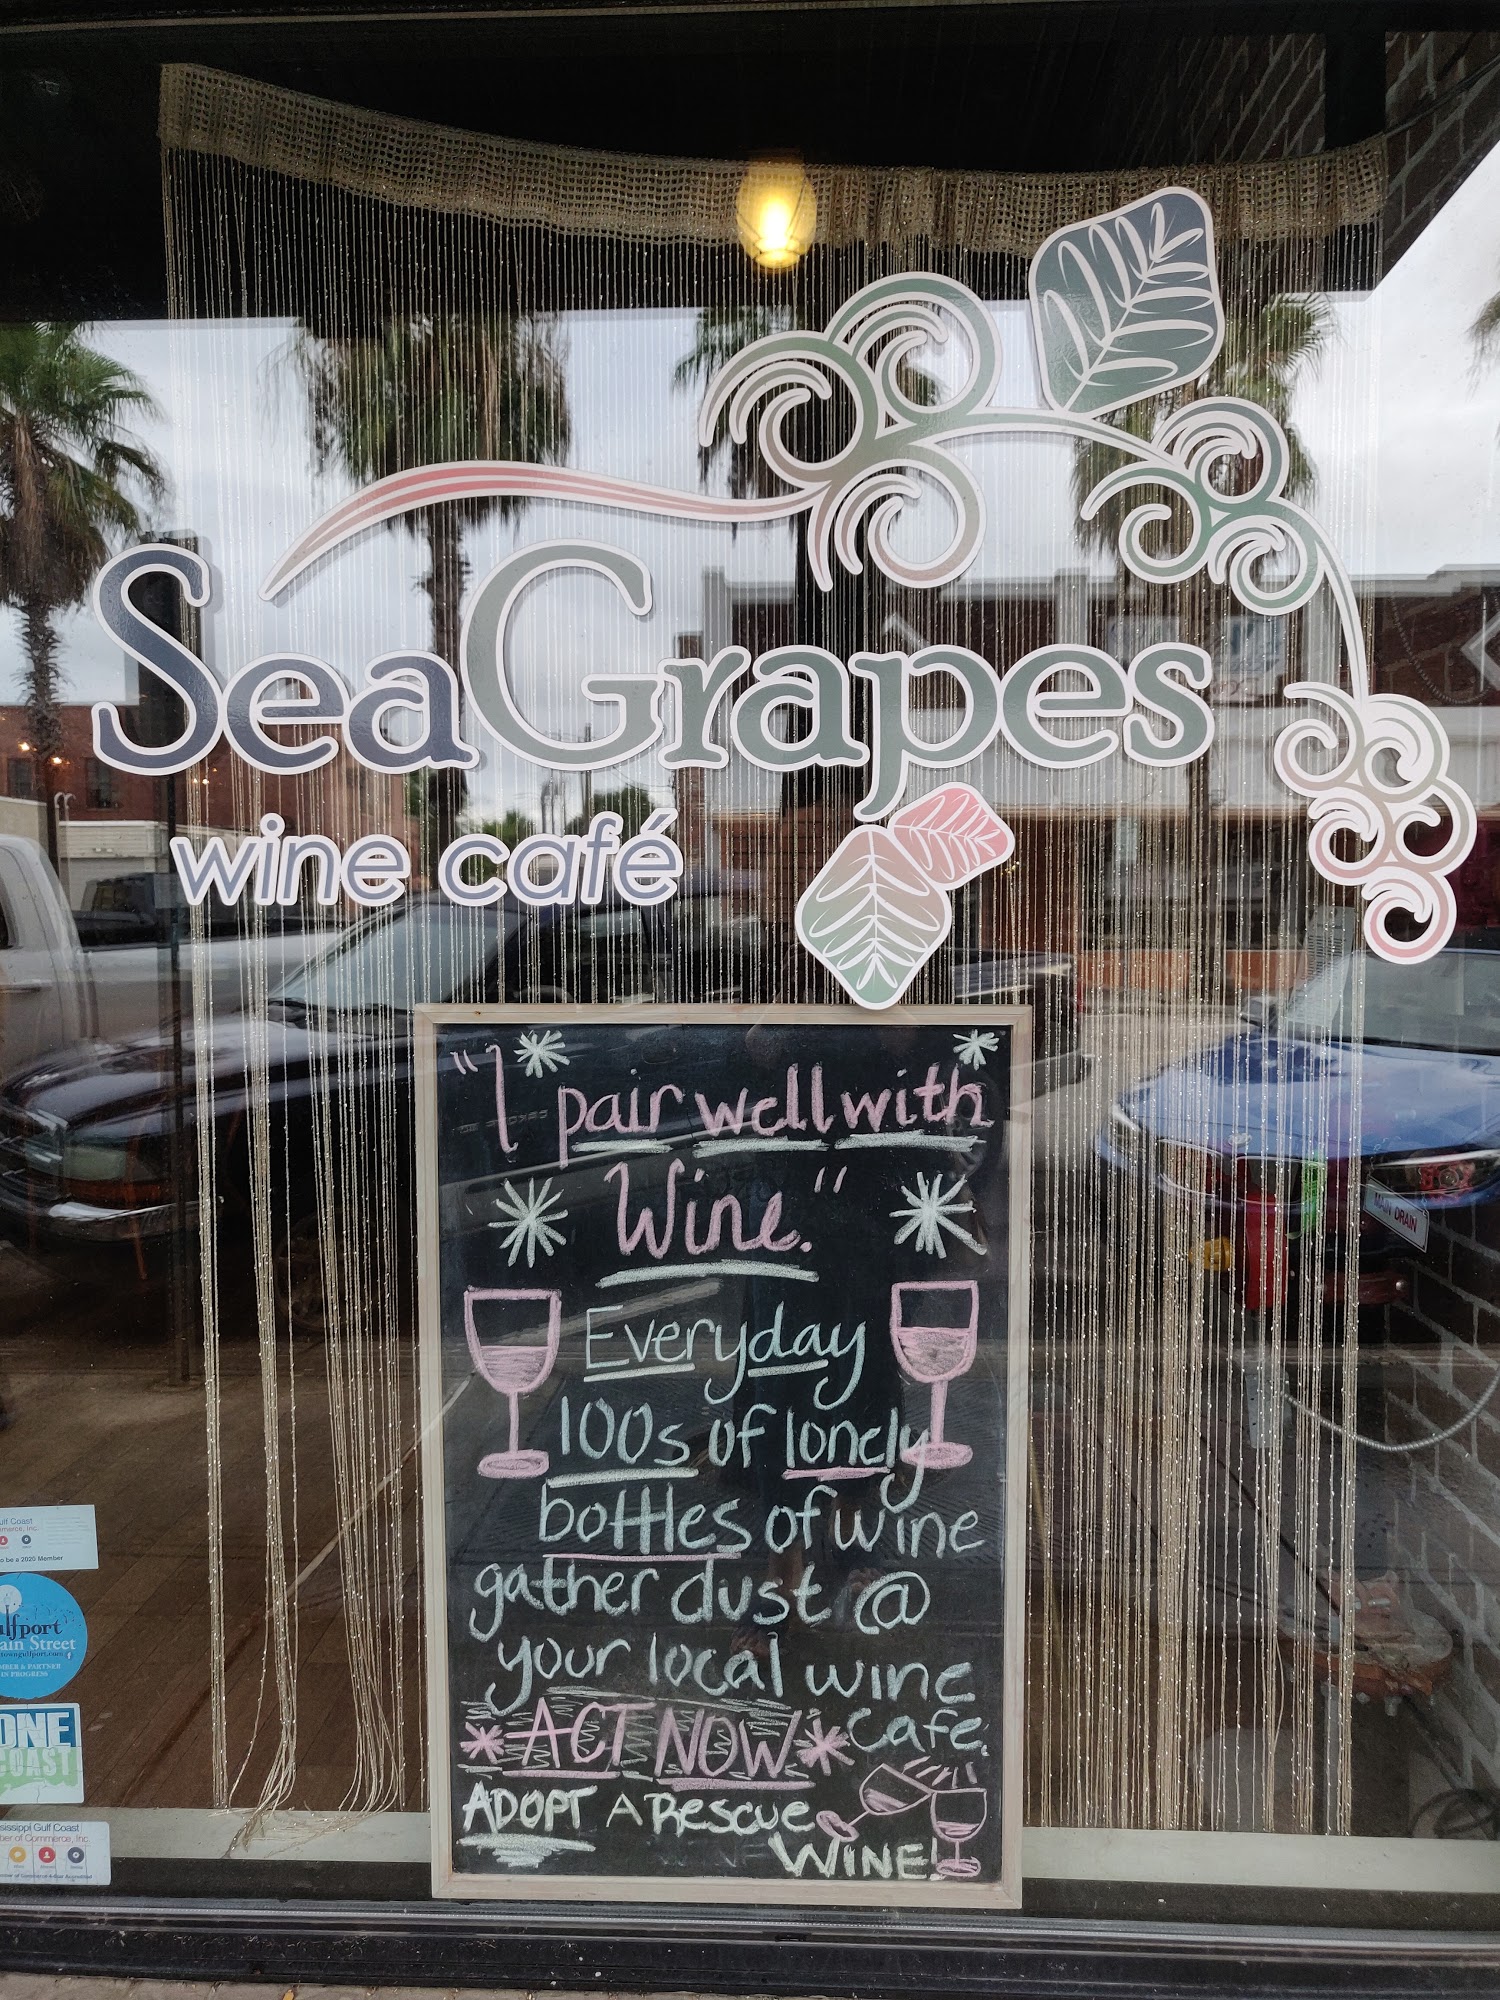 SeaGrapes
wine café
"I pair well with
Wine."
Everyday
100s of lonely
bottles of wine
gather dust @
your local wine
cafe.
ACT NOW
ADOPT A RESCUE
WINE!
MAIN DRAIN
ulf Coast
merce, Inc.
o be a 2020 Member
ulfport
ain Street
MBER & PARTNER
IN PROGRESS
ONE
COAST
sissippi Gulf Coast
ber of Commerce, Inc.